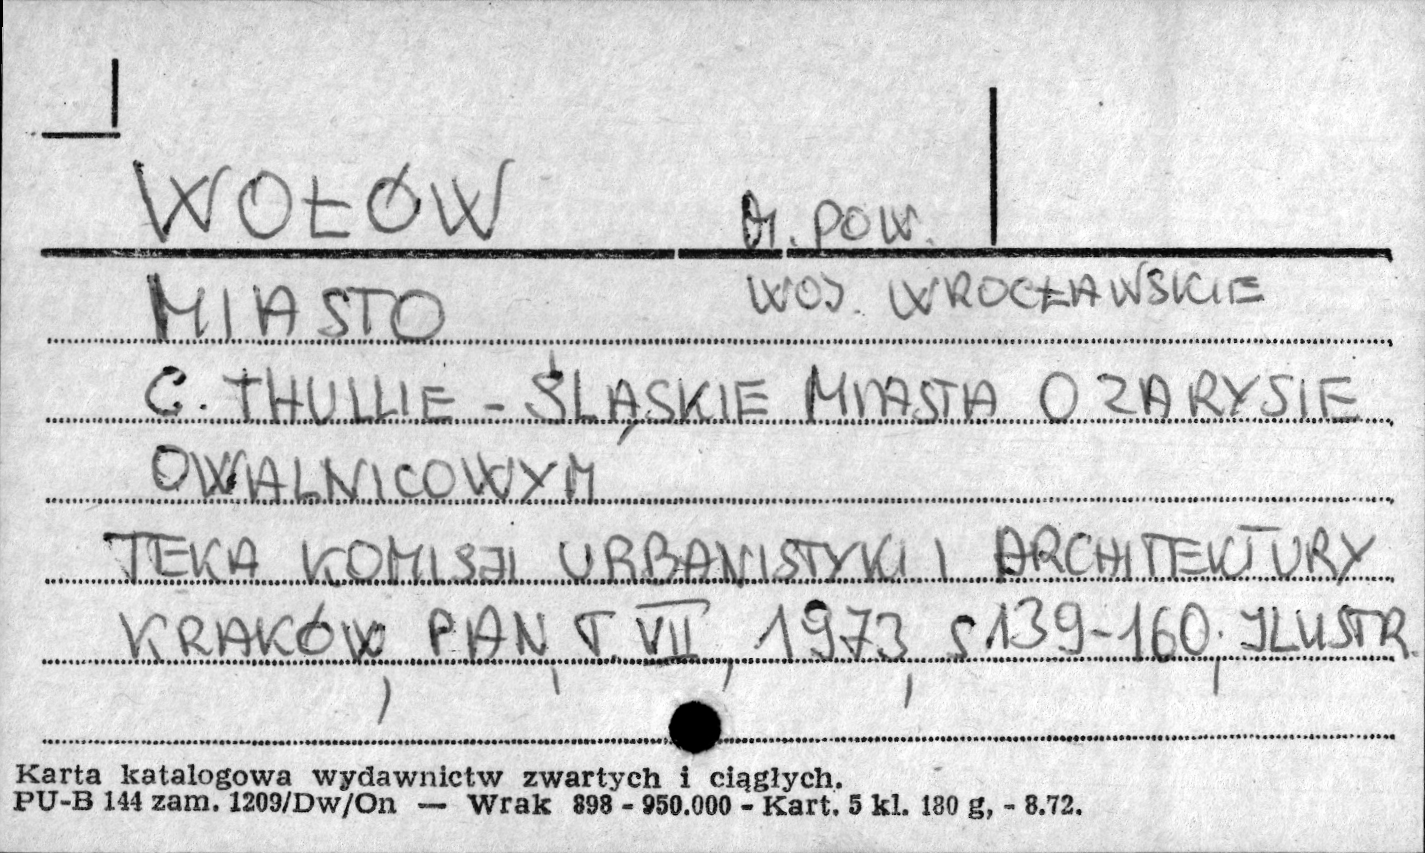 WOŁÓW M. POW.
MIASTO WOJ. WROCŁAWSKIE
C. THULLIE - ŚLĄSKIE MIASTA O ZARYSIE
OWALNICOWYM
TEKA KOMISJI URBANISTYKI I ARCHITEKTURY
KRAKÓW, PAN, T. VII, 1973, S. 139-160, ILUSTR.
Karta katalogowa wydawnictw zwartych i ciągłych.
PU-B 144 zam. 1209/Dw/On — Wrak 898 - 950.000 - Kart. 5 kl. 180 g, - 8.72.